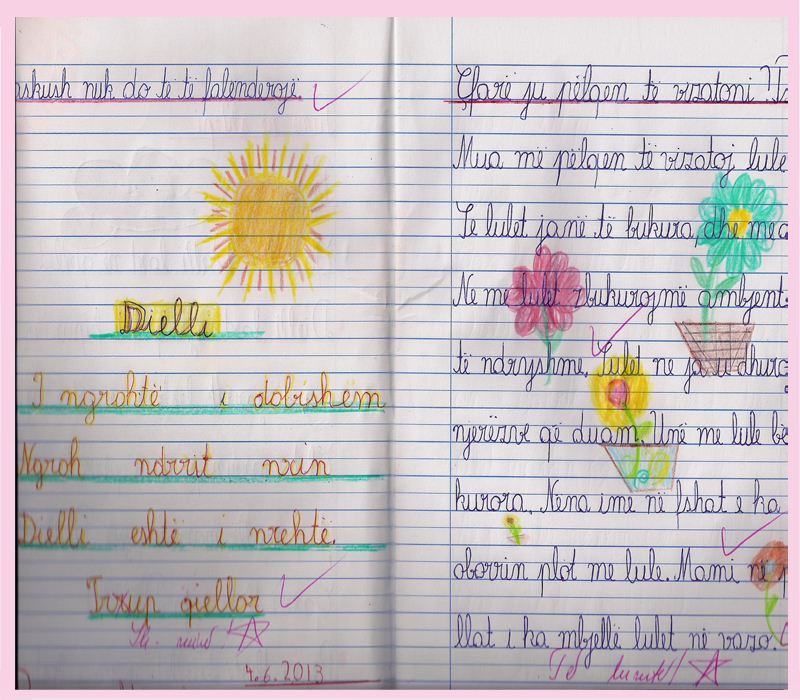 askush nuk do të të falenderojë.
Dielli
I ngrohtë i dobishëm
Ngroh ndrrit nxin
Dielli eshtë i nxehtë.
Trrup qiellor
4.6.2013
Çfarë ju pëlqen të vizatoni?
Mua më pëlqen të vizatoj lule
Se lulet janë të bukura, dhe me
Ne me lulet zbukurojmë ambjent
të ndryshme. Lulet ne ja u dhuro
njerëzve që duam. Unë me lule bë
kurora. Nëna ime në fshat e ka
oborrin plot me lule. Mami në
llat i ka mbjellë lulet në vazo.
Të lumtë!